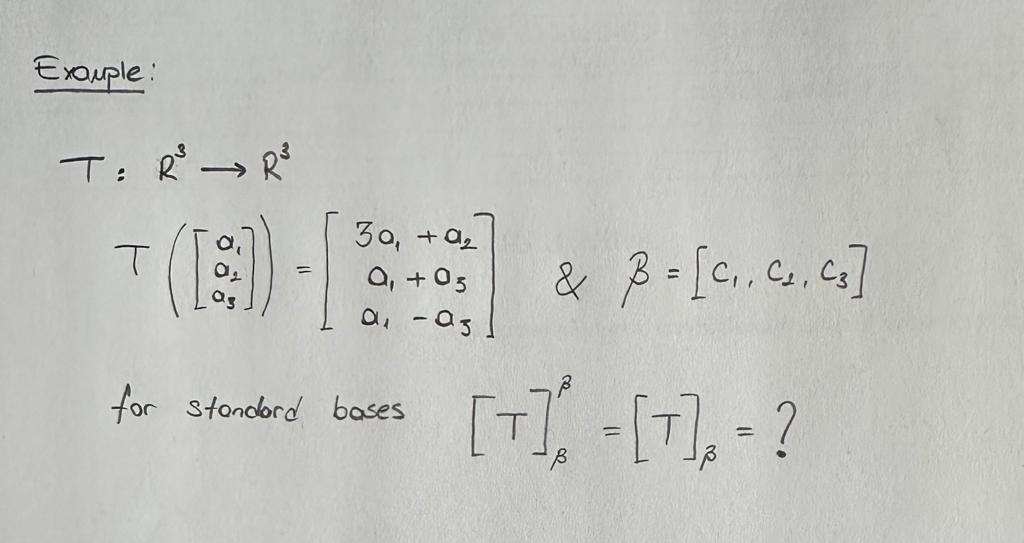 Example:
T: R³ → R³
T([a₁ a₂ a₃]) = [3a₁ + a₂ a₁ + a₃ a₁ - a₃] & β = [c₁, c₂, c₃]
for standard bases [T]ᵝᵦ = [T]ᵦ = ?